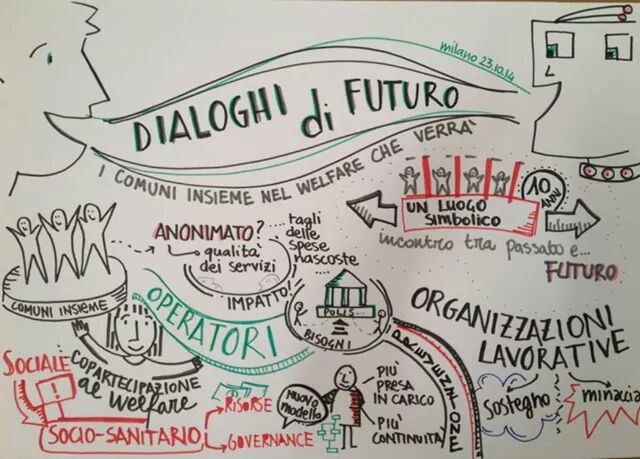 milano 23.10.14
DIALOGHI di FUTURO
I COMUNI INSIEME NEL WELFARE CHE VERRÀ
10 ANNI
UN LUOGO
SIMBOLICO
incontro tra passato e...
FUTURO
ANONIMATO?
qualità
dei servizi
... tagli
delle
spese
nascoste
...
IMPATTO!
COMUNI INSIEME
OPERATORI
POLIS
BISOGNI
ORGANIZZAZIONI
LAVORATIVE
SOCIALE
COPARTECIPAZIONE
al welfare
SOCIO-SANITARIO
RISORSE
GOVERNANCE
NUOVO
modello
PIÙ
PRESA
IN CARICO
PIÙ
CONTINUITÀ
sostegno
minaccia